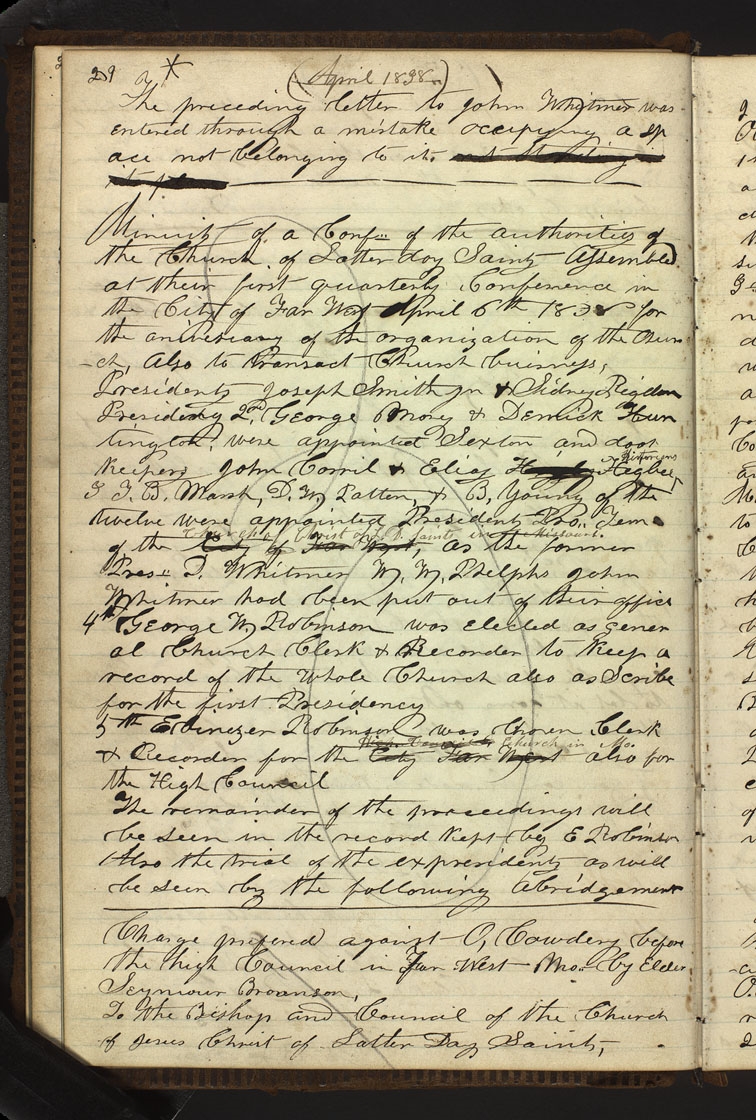 29 (April 1838)
The preceding letter to John Whitmer was
entered through a mistake occupying a sp
ace not belonging to it. not standing in
its place
Minuits of a Conf= of the authorities of
the Church of Latter day Saints Assembled
at their first quarterly Conference in
the City of Far West April 6th 1838 for
the aniversary of the organization of the Chur
-ch, Also to transact Church buisness,
Presidents Joseph Smith Jn & Sidney Rigdon
Presiding 2nd, George Morey & Demick Hun
tington, were appointed Sexton and door
Historians
Keepers John Corril & Elias Higbee,
3 T. B. Marsh, D. W Patten, & B. Young of the
twelve were appointed Presidents Pro.. Tem
Church of Christ of L. D. Saints in Missouri.
of the City of Far West, as the former
Pres= D. Whitmer W, W, Phelphs John
Whitmer had been put out of their office
4th George W, Robinson was elected as gener
al Church Clerk & Recorder to keep a
record of the whole Church also as Scribe
for the first Presidency
5th Ebenezer Robinson was chosen Clerk
High Council Church in Mo.
& Recorder for the City Far West also for
the High Council
The remainder of the proceedings will
be seen in the record kept by E Robinson
Also the trial of the expresidents as will
be seen by the following Abridgement
Charge prefered against O, Cowdery before
the high Council in Far West Mo.. by Elder
Seymour Brounson,
To the Bishop and Council of the Church
of Jesus Christ of Latter Day Saints,